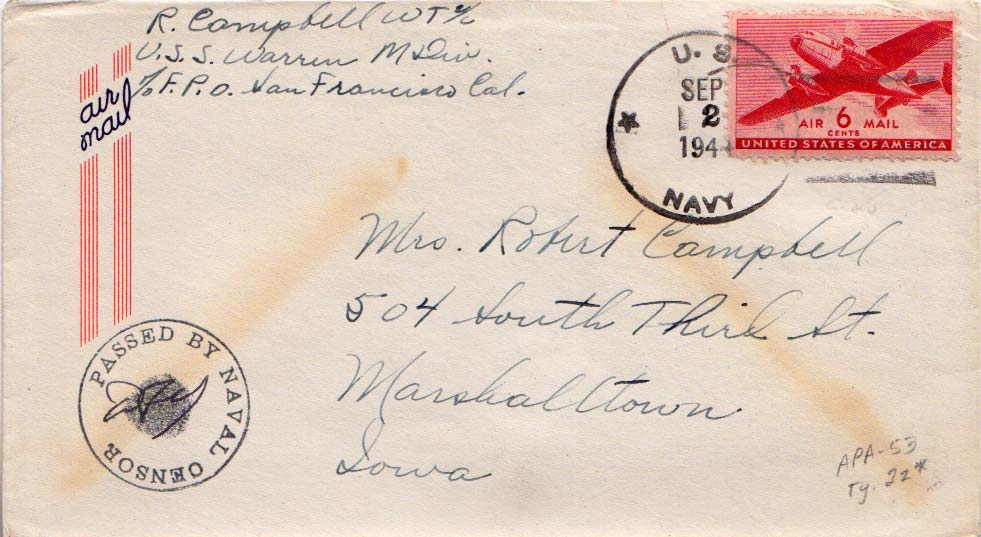 R. Campbell WT 2/c
U.S.S. Warren M Div.
c/o F.P.O. San Francisco Cal.
air
mail
U. S.
SEP
2
194
NAVY
AIR 6 MAIL
CENTS
UNITED STATES OF AMERICA
Mrs. Robert Campbell
504 South Third St.
Marshalltown
Iowa
PASSED BY NAVAL CENSOR
APA-53
Ty. 2z*